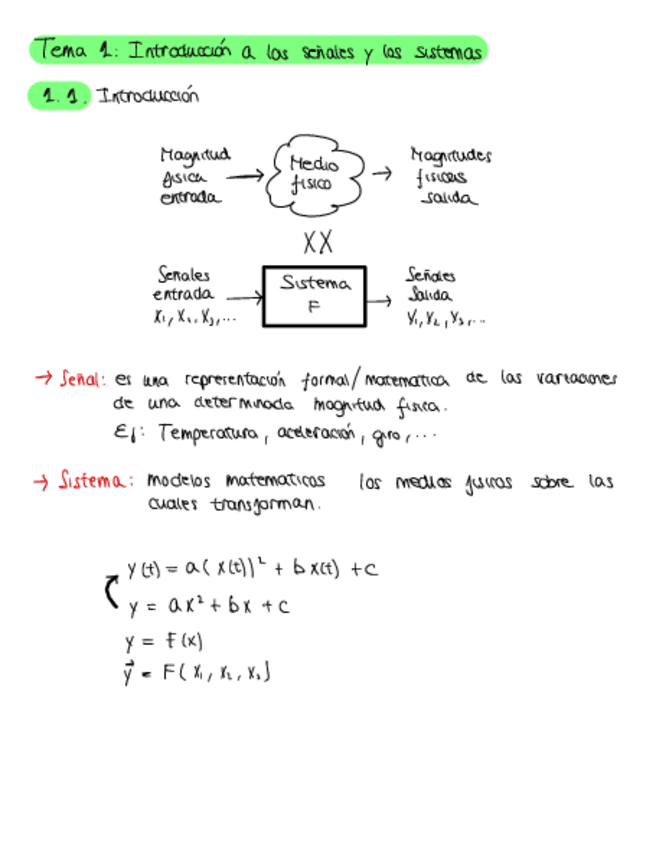 Tema 1: Introducción a las señales y los sistemas
1.1. Introducción
Magnitud
física
entrada
→
Medio
físico
→
Magnitudes
físicas
salida
XX
Senales
entrada
x₁, x₂, x₃, ...
→
Sistema
F
→
Señales
Salida
y₁, y₂, y₃, ...
→ Señal: es una representación formal/matematica de las variaciones
de una determinada magnitud fisica.
Ej: Temperatura, aceleración, giro, ...
→ Sistema: modelos matematicos los medios fisicos sobre las
cuales transforman.
y(t) = a(x(t))² + bx(t) + c
y = ax² + bx + c
y = f(x)
y⃗ = F(x₁, x₂, x₃)